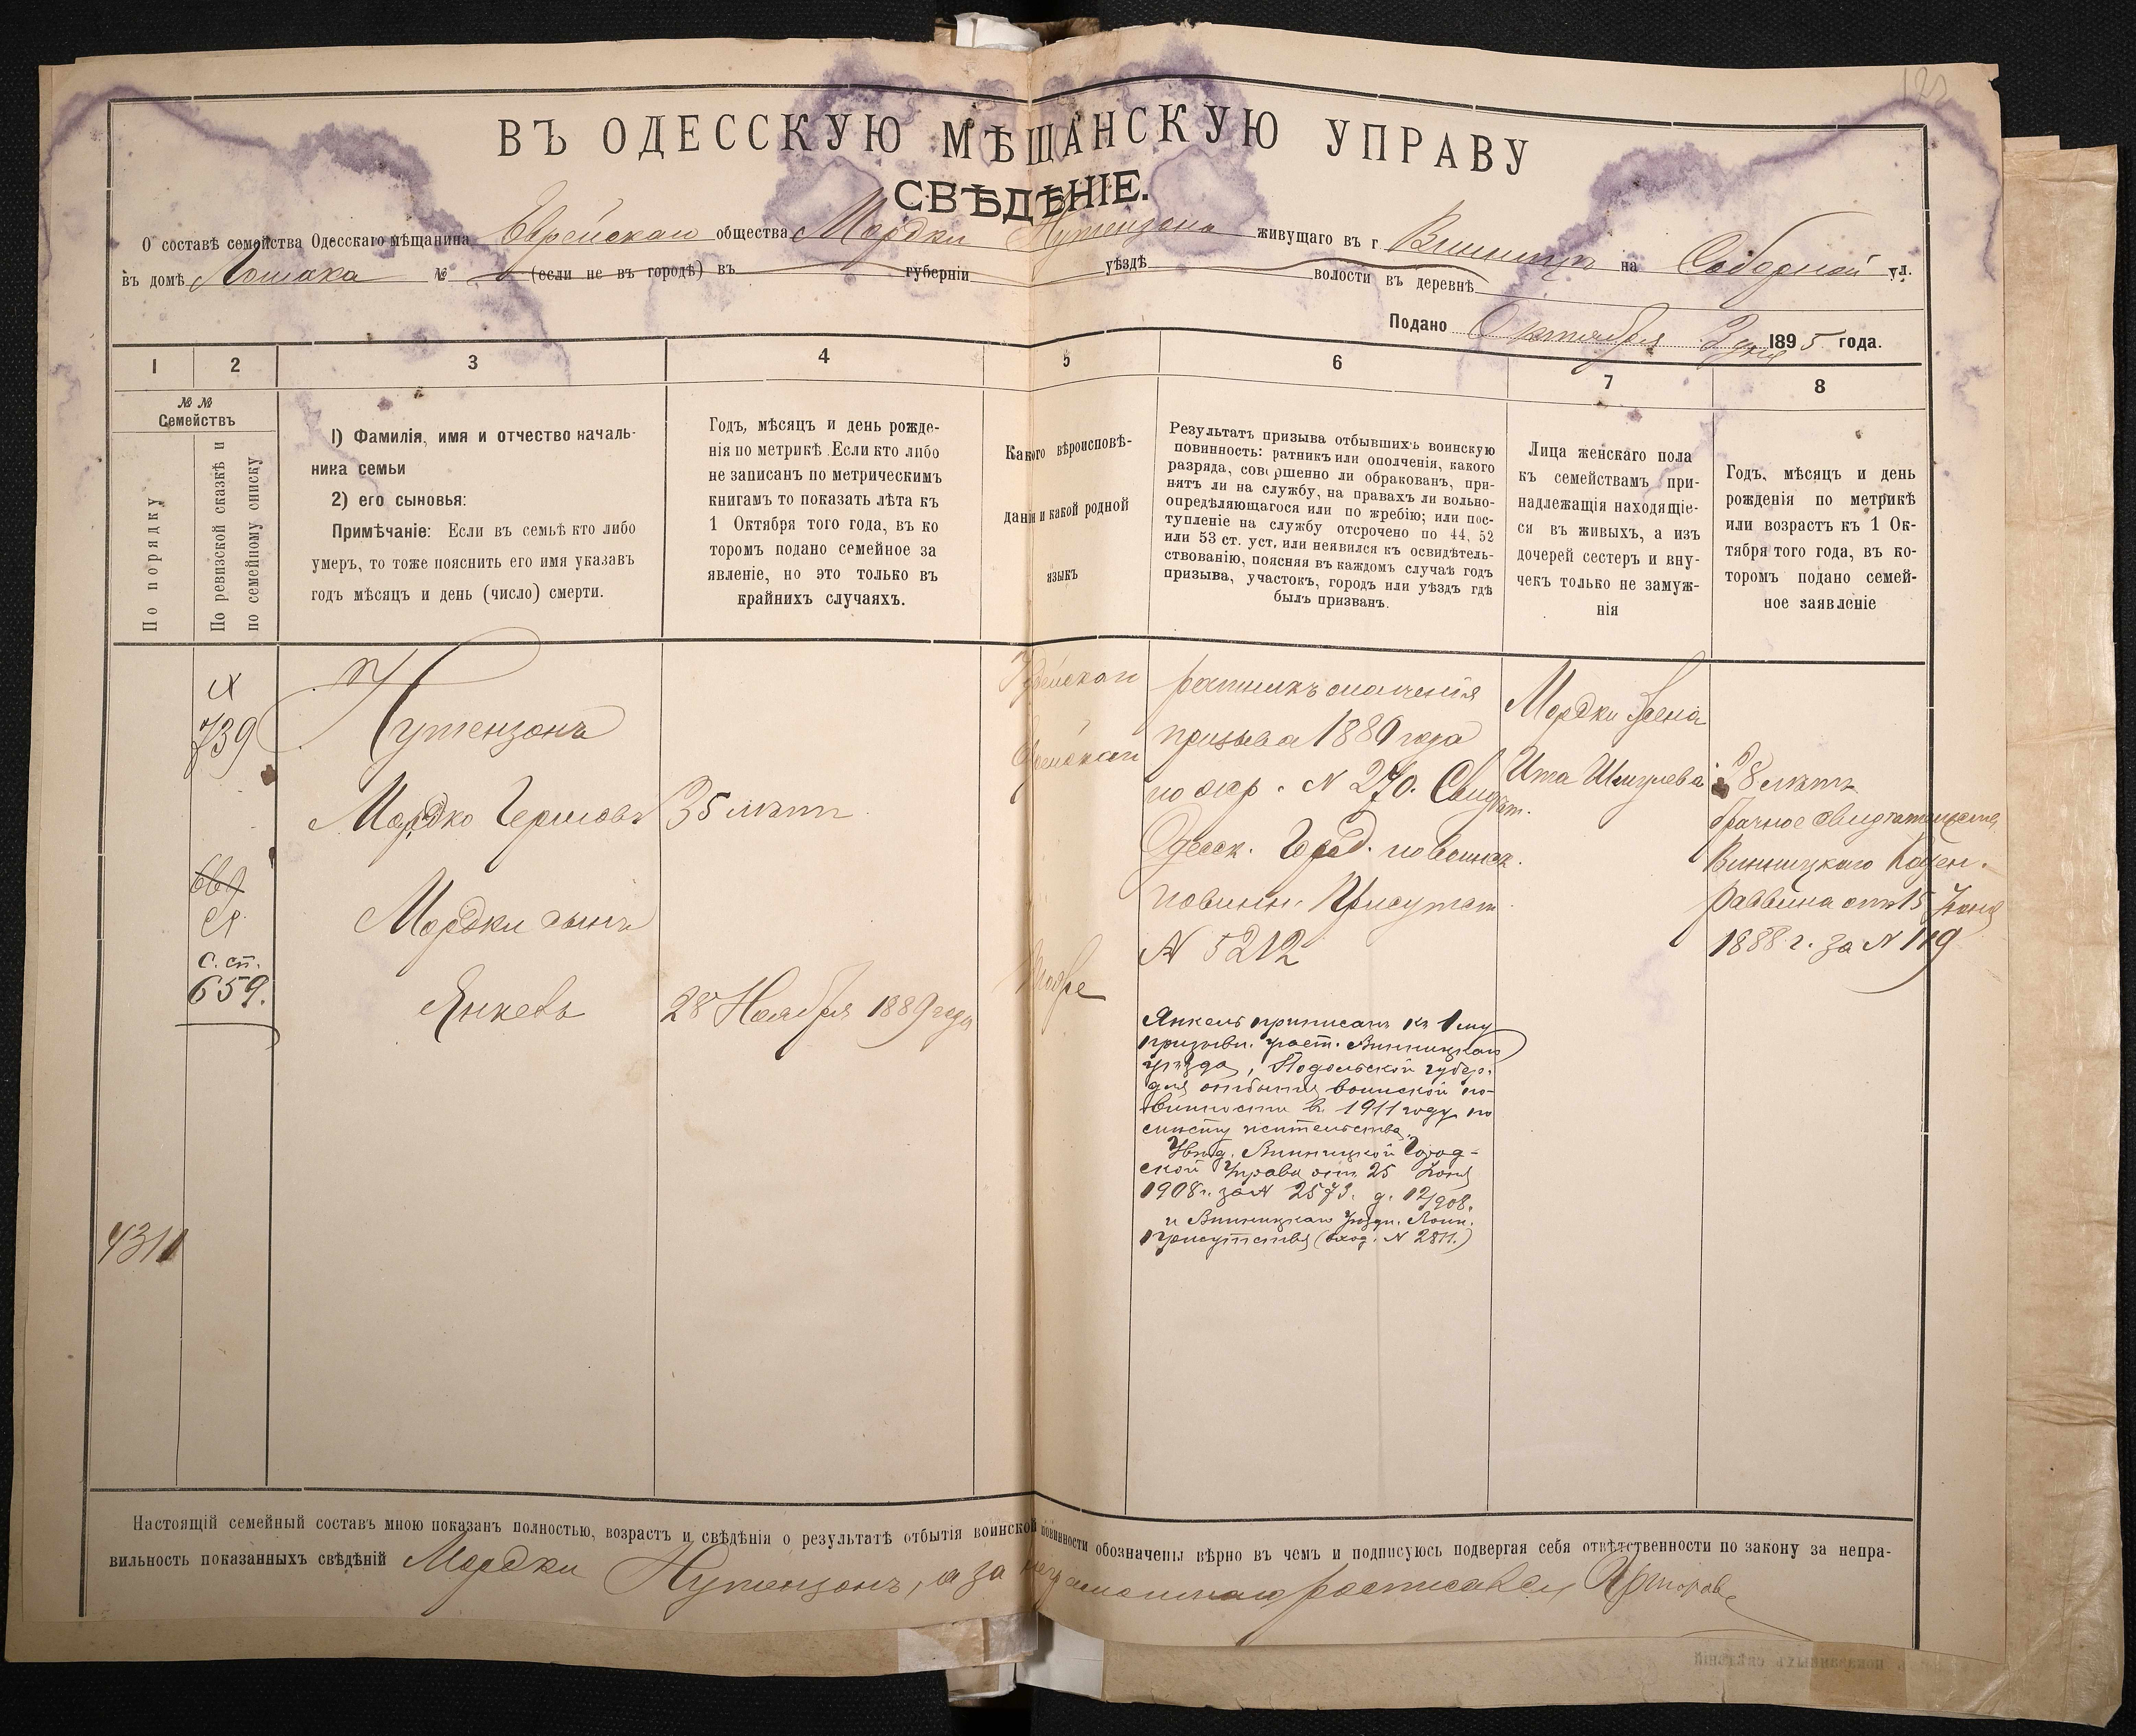 ВЪ ОДЕССКУЮ МѢЩАНСКУЮ УПРАВУ
СВѢДѢНІЕ.
О составѣ семейства Одесскаго мѣщанина Еврейскаго общества Мордки Нутензона живущаго въ г Винницѣ на Соборной ул.
въ домѣ Лошака № (если не въ городѣ) въ губерніи уѣздѣ волости въ деревнѣ
Подано Октября 2 дня 1895 года.
1 2 3 4 5 6 7 8
№ № Семействъ
По порядку
По ревизской сказкѣ и
по семейному списку
1) Фамилія, имя и отчество началь-
ника семьи
2) его сыновья:
Примѣчаніе: Если въ семьѣ кто либо
умеръ, то тоже пояснить его имя указавъ
годъ мѣсяцъ и день (число) смерти.
Годъ, мѣсяцъ и день рожде-
нія по метрикѣ. Если кто либо
не записанъ по метрическимъ
книгамъ то показать лѣта къ
1 Октября того года, въ ко
торомъ подано семейное за
явленіе, но это только въ
крайнихъ случаяхъ.
Какого вѣроисповѣ-
данія и какой родной
языкъ
Результатъ призыва отбывшихъ воинскую
повинность: ратникъ или ополченія, какого
разряда, совершенно ли обракованъ, при-
нятъ ли на службу, на правахъ ли вольно-
опредѣляющагося или по жребію; или пос-
тупленіе на службу отсрочено по 44, 52
или 53 ст. уст, или неявился къ освидѣтель-
ствованію, поясняя въ каждомъ случаѣ годъ
призыва, участокъ, городъ или уѣздъ гдѣ
былъ призванъ.
Лица женскаго пола
къ семействамъ при-
надлежащія находящіе-
ся въ живыхъ, а изъ
дочерей сестеръ и вну-
чекъ только не замуж-
нія
Годъ, мѣсяцъ и день
рожденія по метрикѣ
или возрастъ къ 1 Ок-
тября того года, въ ко-
торомъ подано семей-
ное заявленіе
739
с. сп.
659.
4311
Нутензонъ
Мордко Гершовъ
Мордки сынъ
Янкель
35 лѣтъ
28 Ноября 1889 года
Іудейскаго
Еврейскій
Тоже
ратникъ ополченія
призыва 1880 года
по жер. N 270. Свидѣт.
Одесск. Город. по воинск.
повинн. Присутств
N 5212
Янкель приписанъ къ 1му
призывн. участ. Винницкаго
уѣзда, Подольской губер.
для отбытія воинской по-
винности въ 1911 году по
мѣсту жительства.
Увѣд. Винницкой Город-
ской Управы отъ 25 Іюня
1908 г. за N 2573. д. 12/908.
и Винницкаго Уѣздн. Воин.
Присутствія (вход. N 2811.)
Мордки жена
Ита Шмулева
28 лѣтъ
брачное свидѣтельство
Винницкаго Казен.
раввина отъ 15 Іюня
1888 г. за N 119
Настоящій семейный составъ мною показанъ полностью, возрастъ и свѣдѣнія о результатѣ отбытія воинской повинности обозначены вѣрно въ чемъ и подписуюсь подвергая себя отвѣтственности по закону за непра-
вильность показанныхъ свѣдѣній Мордки Нутензонъ, а за неграмотнаго росписался